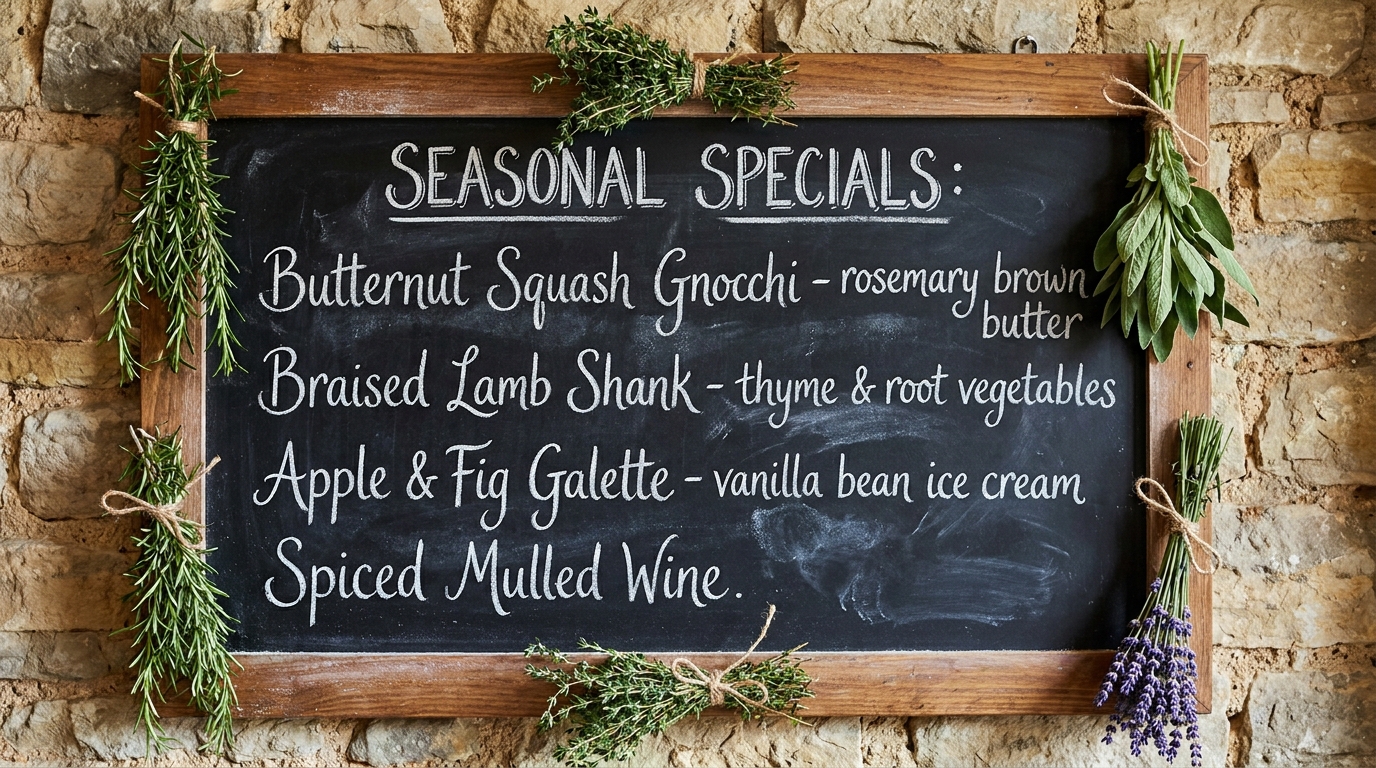 SEASONAL SPECIALS:
Butternut Squash Gnocchi - rosemary brown
butter
Braised Lamb Shank - thyme & root vegetables
Apple & Fig Galette - vanilla bean ice cream
Spiced Mulled Wine.